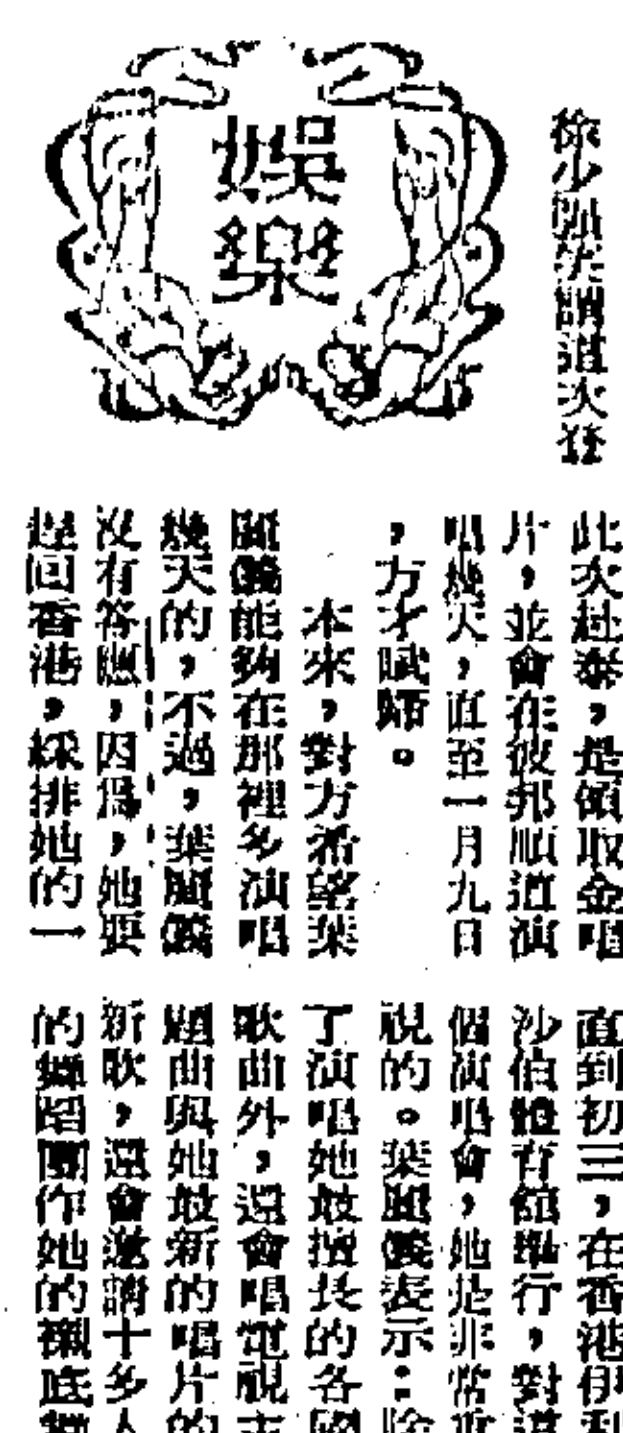 娛樂
徐少
次登
此次赴泰，是領取金唱
片，並會在彼邦順道演
唱幾天，直至一月九日
，方才賦歸。
本來，對方希望葉
麗儀能夠在那裡多演唱
幾天的，不過，葉麗儀
沒有答應，因爲，她要
趕回香港，綵排她的一
直到初三，在香港伊利
沙伯體育舘舉行，對這
個演唱會，她是非常重
視的。葉麗儀表示：除
了演唱她最擅長的各國
歌曲外，還會唱電視主
題曲與她最新的唱片的
新歌，還會邀請十多人
的舞蹈團作她的襯底舞